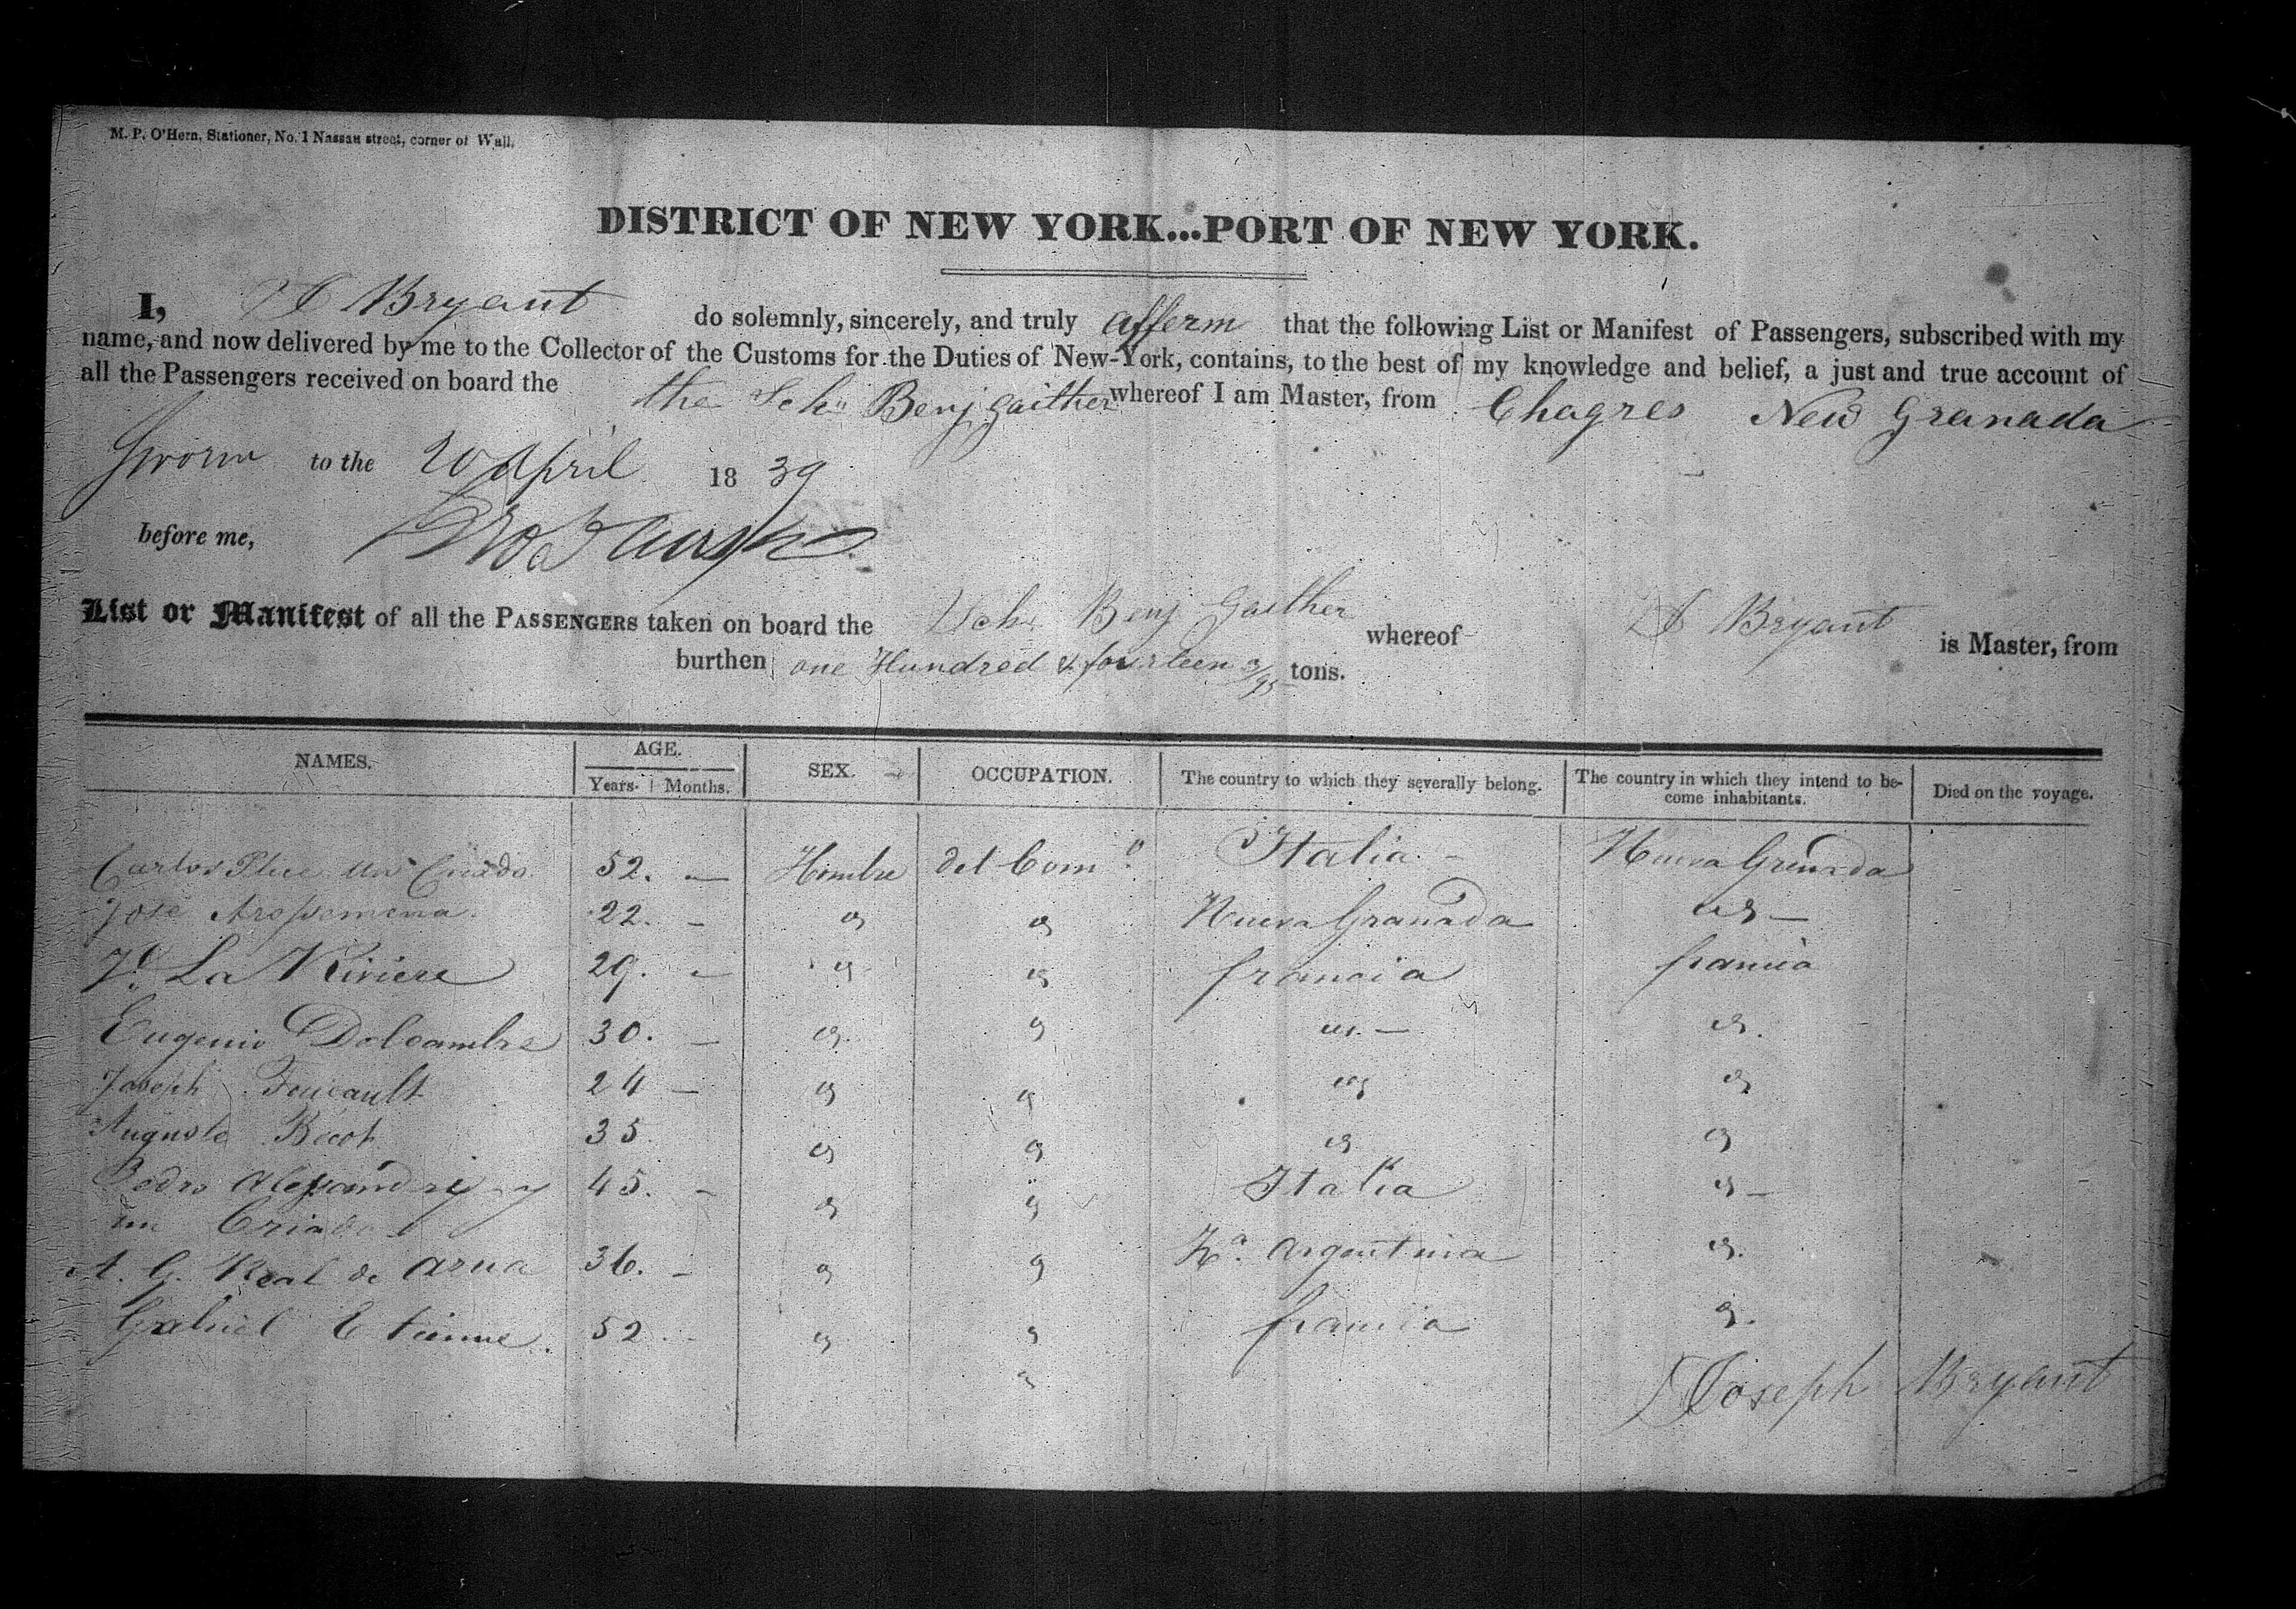 M. P. O'Hern, Stationer, No. 1 Nassau street, corner of Wall.
DISTRICT OF NEW YORK...PORT OF NEW YORK.
I, J Bryant do solemnly, sincerely, and truly afferm that the following List or Manifest of Passengers, subscribed with my
name, and now delivered by me to the Collector of the Customs for the Duties of New-York, contains, to the best of my knowledge and belief, a just and true account of
all the Passengers received on board the the Schr Benj Gaither whereof I am Master, from Chagres New Granada
Sworn to the 20 April 1839
before me,
List or Manifest of all the PASSENGERS taken on board the Schr Benj Gaither whereof J Bryant is Master, from
burthen one Hundred & fourteen 3/95 tons.
NAMES. AGE. SEX. OCCUPATION. The country to which they severally belong. The country in which they intend to be- Died on the voyage.
Years. Months. come inhabitants.
Carlos un Criado 52. — Hombre del Como. Italia - Nueva Grenada
Jose Arosemena. 22. — " " Nueva Granada " —
J. La Riviere 29. — " " francia francia
Eugenio Delcambre 30. — " " " — "
Joseph Foucault 24 — " " " "
Auguste Becot 35 " " " "
Pedro Alessandri y 45. - " " Italia " —
un Criado
A. G. Real de Azua 36. - " " Ra. Argentina "
Gabriel Etienne. 52 - " " francia "
"
Joseph Bryant